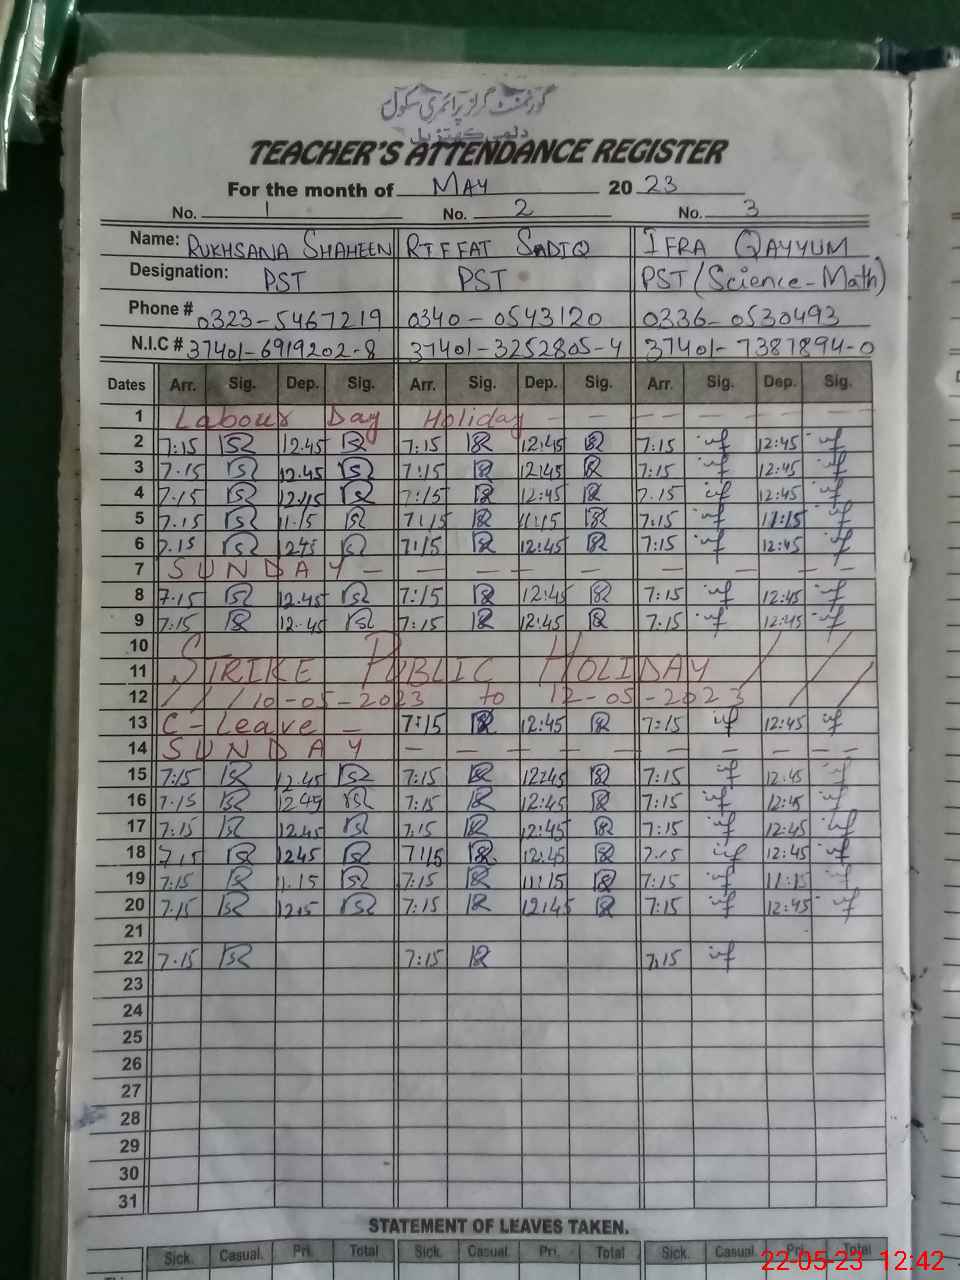 گورنمنٹ گرلز پرائمری سکول
TEACHER'S ATTENDANCE REGISTER
For the month of MAY 20 23
No. 1 No. 2 No. 3
Name: RUKHSANA SHAHEEN RIFFAT SADIQ IFRA QAYYUM
Designation: PST PST PST (Science-Math)
Phone # 0323-5467219 0340-0543120 0336-0530493
N.I.C # 37401-6919202-8 37401-3252805-4 37401-7387894-0
Dates Arr. Sig. Dep. Sig. Arr. Sig. Dep. Sig. Arr. Sig. Dep. Sig.
1 Labour Day Holiday - - - - - - -
2 7:15 12.45 7:15 12:45 7:15 12:45
3 7.15 12.45 7:15 12:45 7:15 12:45
4 7.15 7:15 12:45 7.15 12:45
5 7.15 11.15 7:15 11:15 7:15 11:15
6 7.15 7:15 12:45 7:15 12:45
7 SUNDAY - - - - - - - -
8 7.15 12.45 7:15 12:45 7:15 12:45
9 7:15 12.45 7:15 12:45 7:15 12:45
10
11 STRIKE PUBLIC HOLIDAY / / /
12 / / / 10-05-2023 to 12-05-2023 / /
13 C-Leave - 7:15 12:45 7:15 12:45
14 SUNDAY - - - - - - - - -
15 7:15 12.45 7:15 12:45 7:15 12.45
16 7.15 7:15 12:45 7:15 12:45
17 7:15 12.45 7:15 12:45 7:15 12:45
18 7.15 1245 7:15 12:45 7.15 12:45
19 7:15 11.15 7:15 11:15 7:15 11:15
20 7:15 7:15 12:45 7:15 12:45
21
22 7.15 7:15 7:15
23
24
25
26
27
28
29
30
31
STATEMENT OF LEAVES TAKEN.
Sick. Casual. Pri. Total Sick. Casual. Pri. Total Sick. Casual Pri. Total
22-05-23 12:42